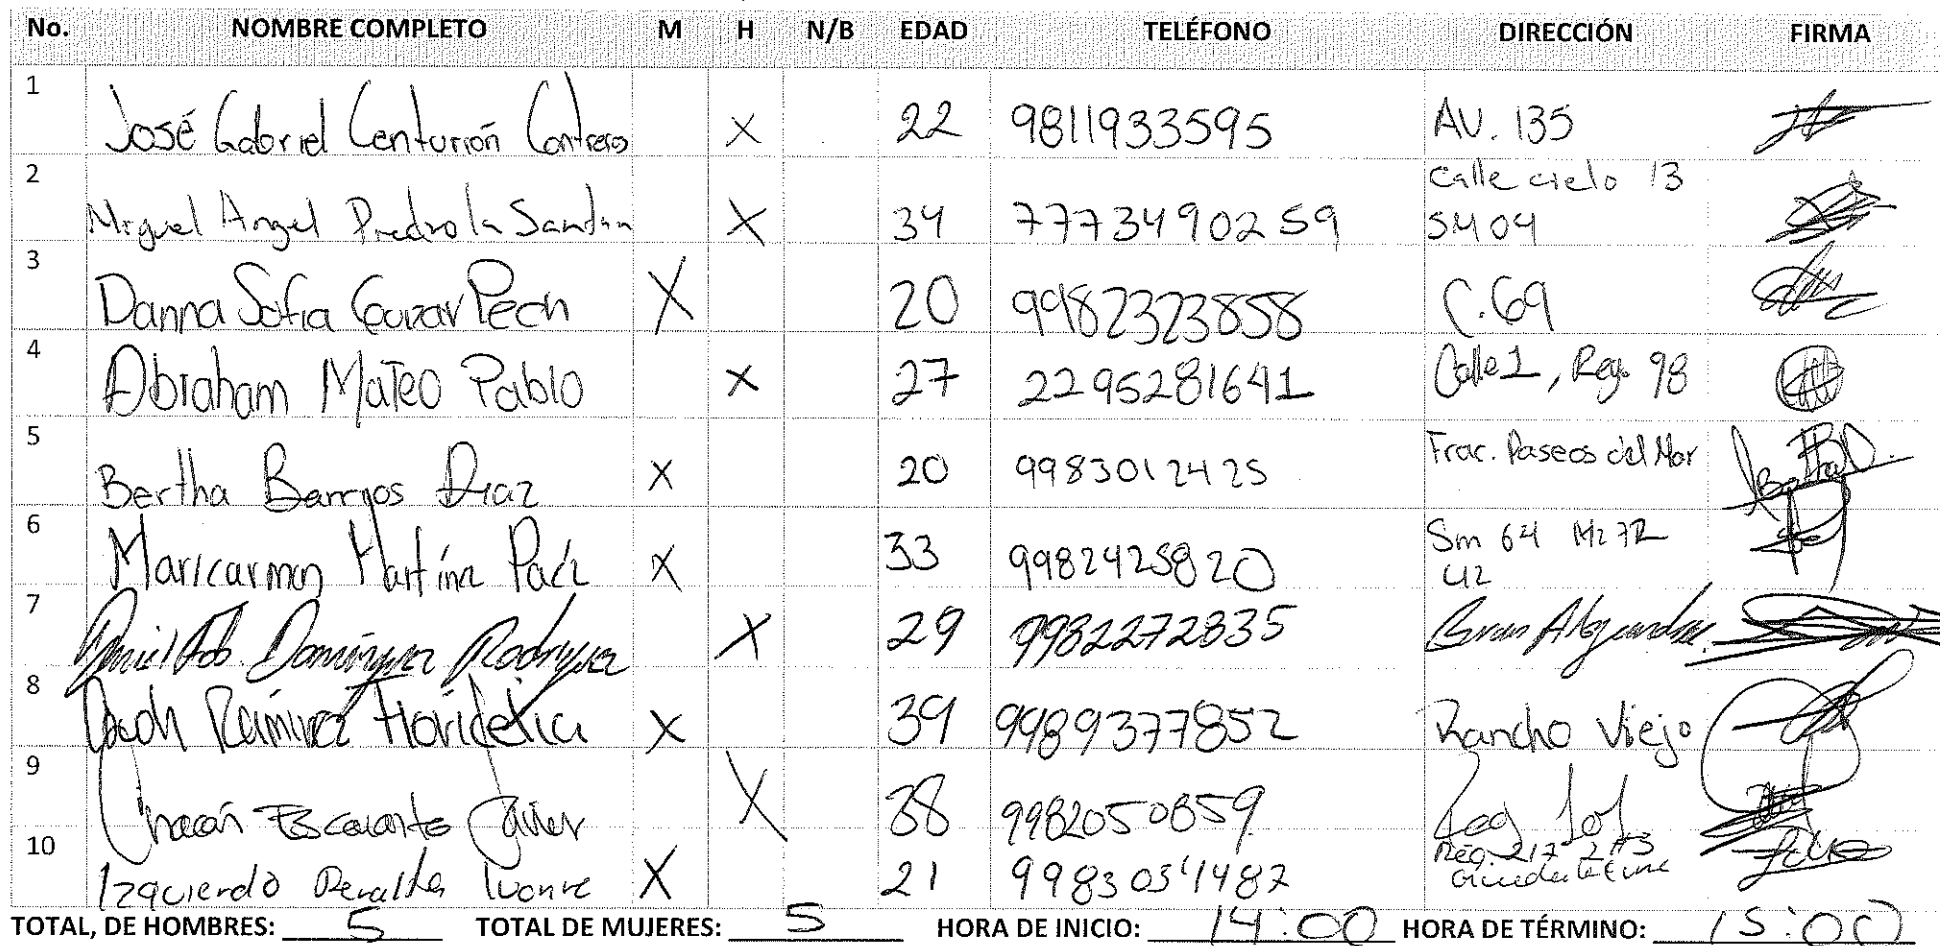 No. NOMBRE COMPLETO M H N/B EDAD TELÉFONO DIRECCIÓN FIRMA
1 José Gabriel Centurión Contreras X 22 9811933595 AV. 135
2 Miguel Angel X 34 7773490259 calle cielo 13
SM 04
3 Danna Sofia Pech X 20 9982323858 C.69
4 Abraham Mateo Pablo X 27 2295281641 Calle 1, Reg. 98
5 Bertha Barrios Diaz X 20 9983012425 Frac. Paseos del Mar
6 Maricarmen X 33 9982425820 Sm 64 Mz 7
7 Domínguez Rodríguez X 29 9982272835
8 Ramirez X 39 9989377852 Rancho Viejo
9 Chacón Escalante Javier X 38 9982050859
10 Izquierdo Peralta Ivonne X 21 Reg. 217
TOTAL, DE HOMBRES: 5 TOTAL DE MUJERES: 5 HORA DE INICIO: 14:00 HORA DE TÉRMINO: 15:00